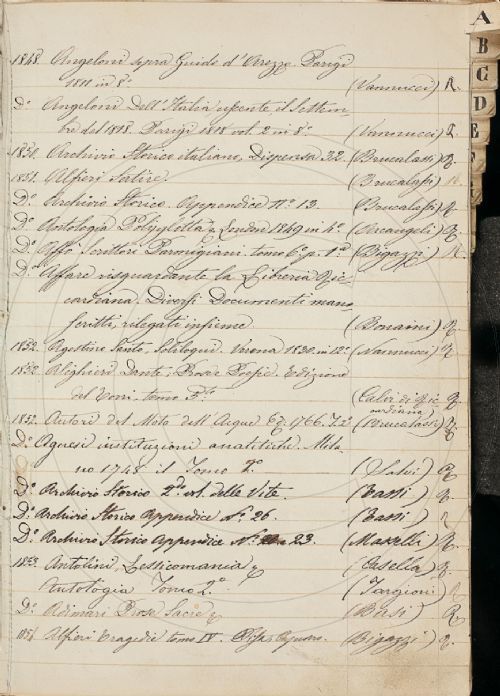 A
B
C
D
E
F
1848. Angeloni sopra Guido d'Arezzo. Parigi
1811 in 8.° (Vannucci) R.
D.° Angeloni Dell'Italia uscente il Settem-
bre del 1818. Parigi 1818 vol. 2 in 8.° (Vannucci) R.
1850. Archivio Storico italiano, Dispensa 32. (Brucalassi) R.
1851. Alfieri Satire. (Brucalassi) R.
D.° Archivio Storico. Appendice N.° 13. (Brucalassi) R.
D.° Antologia Poliglotta Londra 1849 in 4.° (Arcangeli) R.
D.° Affò Scrittori Parmigiani. tomo 6.° p. 1.ª (Bigazzi) R.
D.° Affare risguardante la Libreria Ric-
cardiana. Diversi Documenti mano-
scritti, rilegati insieme (Bonaini) R.
1852. Agostino Santo, Soliloqui. Verona 1830. in 12.° (Nannucci) R.
1852 Alighieri Dante, Prose e Poesie. Edizione
del tomo 5.° (Calvi di Ric-
cardiana) R.
1852. Autori del Moto dell'Acque Ed. 1766. T. 2 (Brucalassi) R.
D.° Agnesi instituzioni analitiche Mila-
no 1748. il Tomo 2.° (Salvi) R.
D.° Archivio Storico 2.° vol. delle Vite. (Tassi) R.
D.° Archivio Storico Appendice N.° 26. (Tassi)
D.° Archivio Storico Appendice N.° 23. (Masselli) R.
1853. Antolini, Lessicomania (Casella) R.
Antologia Tomo 2.° (Targioni) R.
D.° Adimari Prose Sacre (Bersi) R.
Alfieri Tragedie tomo IV. (Bigazzi) R.